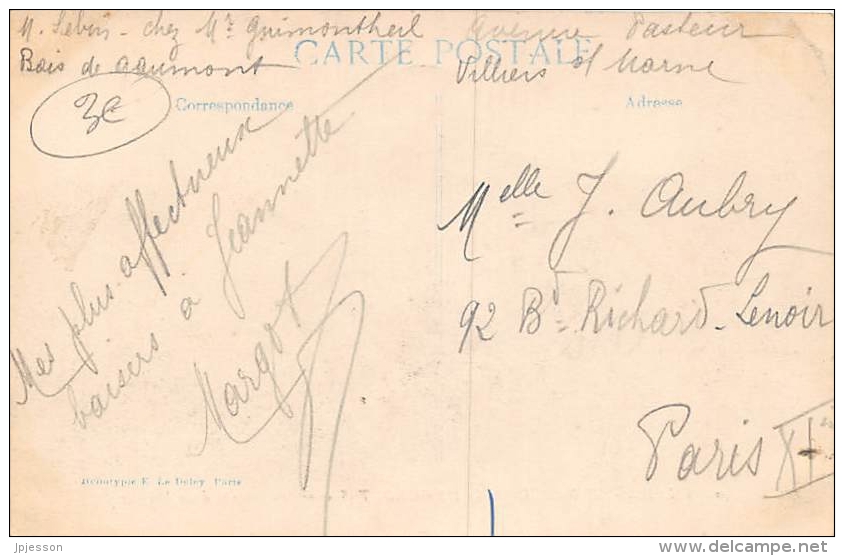 M. Lebris - chez Mr Guimontheil Avenue Pasteur
Bois de Gaumont Villiers s/ Marne
CARTE POSTALE
3€
Correspondance
Adresse
Mes plus affectueux
baisers a Jeannette
Margot
Melle J. Aubry
92 Bd Richard-Lenoir
Paris XIe
Phototypie E. Le Deley, Paris
jpjesson
www.delcampe.net